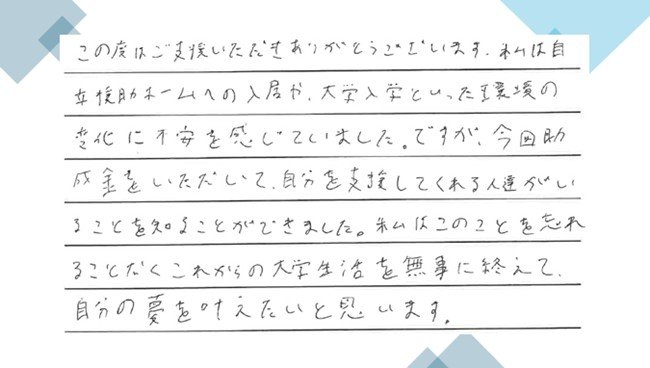 この度はご支援いただきありがとうございます。私は自
立援助ホームへの入居や、大学入学といった環境の
変化に不安を感じていました。ですが、今回助
成金をいただいて、自分を支援してくれる人達がい
ることを知ることができました。私はこのことを忘れ
ることなくこれからの大学生活を無事に終えて、
自分の夢を叶えたいと思います。